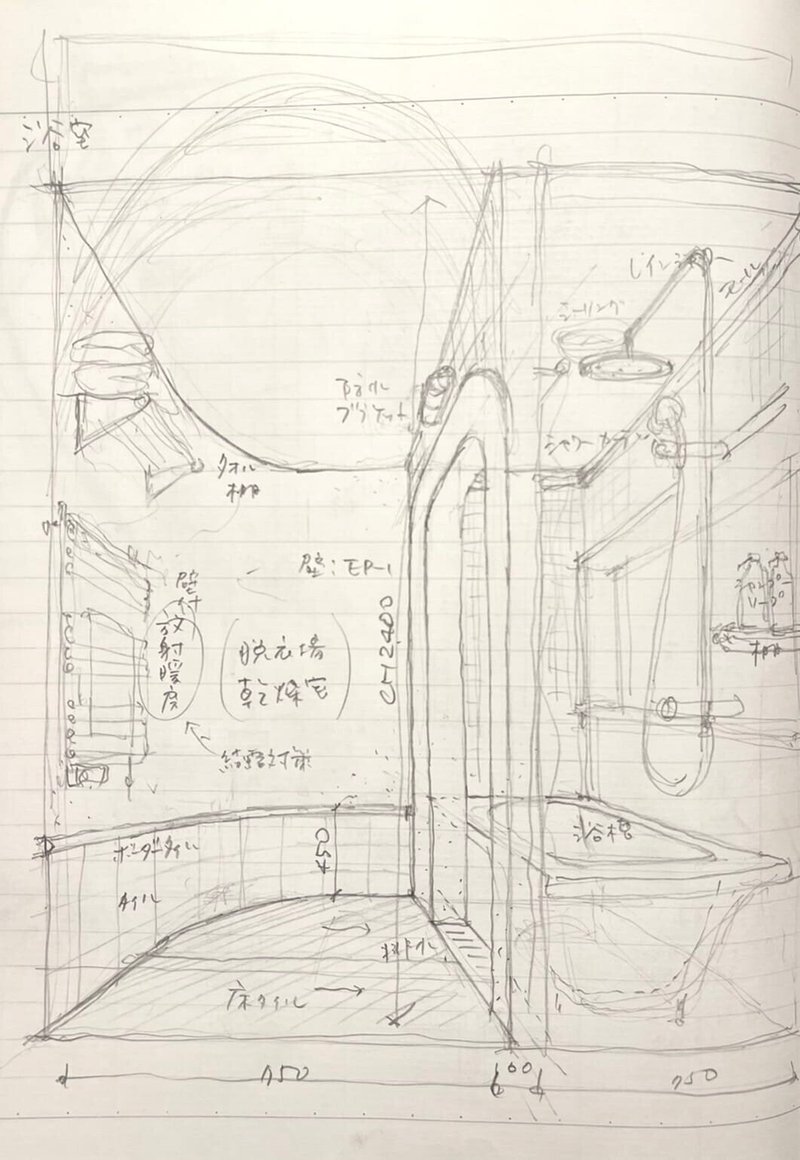 浴室
レインシャワー
シーリング
防水
ブラケット
シャワーカーテン
タオル
棚
壁:EP-1
壁付
放射暖房
(脱衣場
乾燥室)
CH2400
シャンプー
ソープ
棚
結露対策
浴槽
ボーダータイル
タイル
450
排水
床タイル
950
100
750